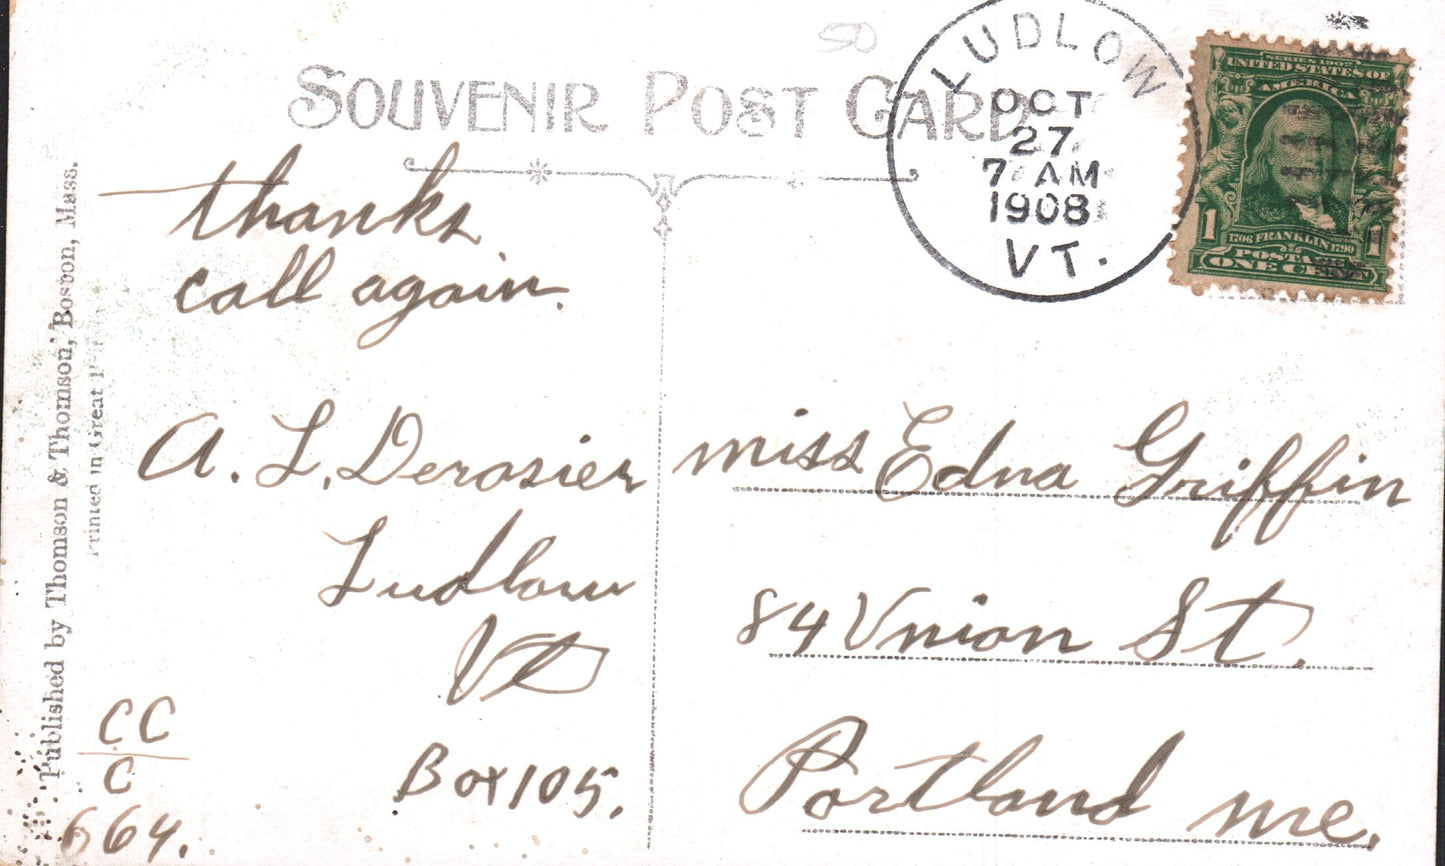 50
SOUVENIR POST CARD
LUDLOW
OCT
27
7 AM
1908
VT.
SERIES 1902
UNITED STATES OF
AMERICA
1
1706 FRANKLIN 1790
1
POSTAGE
ONE CENT
thanks
call again.
A. L. Derosier
Ludlow
Vt
Box 105.
CC
C
664.
miss Edna Griffin
84 Union St.
Portland me.
Published by Thomson & Thomson, Boston, Mass.
Printed in Great